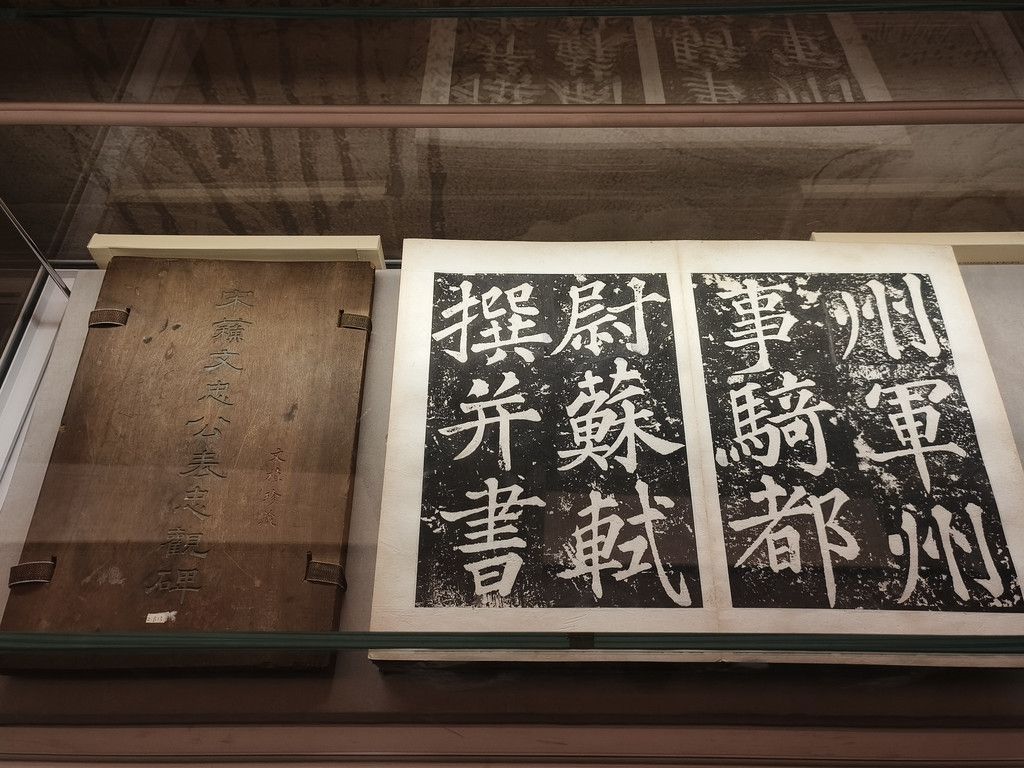 州軍州
事騎都
尉蘇軾
撰并書
宋蘇文忠公表忠觀碑
珍藏